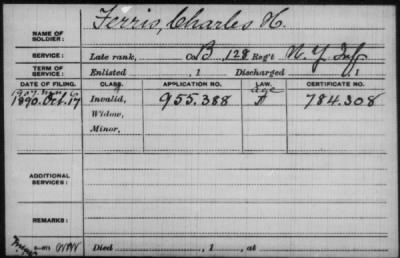 Ferris, Charles H.
NAME OF SOLDIER:
SERVICE: Late rank, Co. B, 128 Reg't N.Y. Inf
TERM OF SERVICE: Enlisted , 1 Discharged , 1
DATE OF FILING. CLASS. APPLICATION NO. LAW. CERTIFICATE NO.
1907 age
1890. Oct. 17 Invalid, 955.388 A 784.308
Widow,
Minor,
ADDITIONAL SERVICES:
REMARKS:
Died , 1 , at